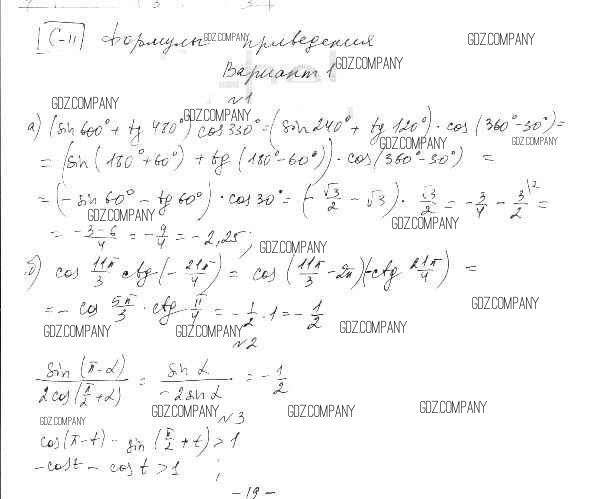 С-11 Формулы приведения
GDZ.COMPANY
GDZ.COMPANY
Вариант 1
GDZ.COMPANY
№1
GDZ.COMPANY
GDZ.COMPANY
а) (sin 600° + tg 480°) cos 330° = (sin 240° + tg 120°) · cos (360° - 30°) =
GDZ.COMPANY
GDZ.COMPANY
= (sin (180° + 60°) + tg (180° - 60°)) · cos (360° - 30°) =
= (- sin 60° - tg 60°) · cos 30° = (- √3/2 - √3) · √3/2 = - 3/4 - 3/2 \2 =
GDZ.COMPANY
GDZ.COMPANY
= (-3-6)/4 = - 9/4 = - 2,25;
б) cos 11π/3 ctg (- 21π/4) = cos (11π/3 - 2π)(-ctg 21π/4) =
= - cos 5π/3 · ctg π/4 = - 1/2 · 1 = - 1/2
GDZ.COMPANY
GDZ.COMPANY
GDZ.COMPANY
GDZ.COMPANY
№2
sin (π - α) / 2cos (π/2 + α) = sin α / -2 sin α = - 1/2
GDZ.COMPANY
GDZ.COMPANY
GDZ.COMPANY
GDZ.COMPANY
№3
cos (π - t) - sin (π/2 + t) > 1
- cos t - cos t > 1 ;
- 19 -